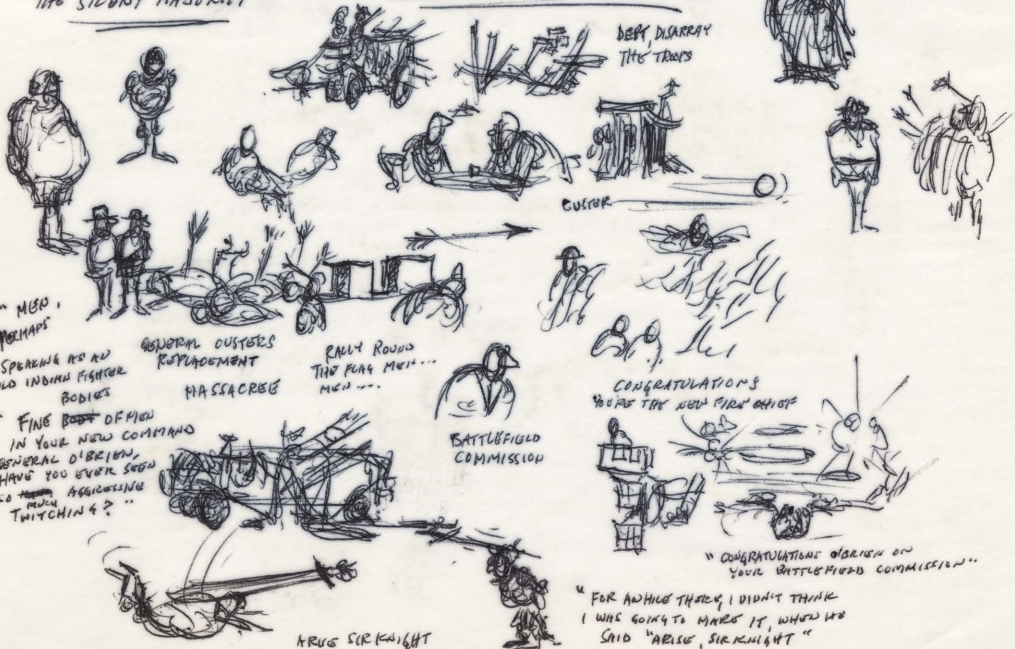 THE SILENT MAJORITY
DEPT, DISARRAY
THE TROOPS
CUSTER
" MEN,
PERHAPS
SPEAKING AS AN
OLD INDIAN FIGHTER
BODIES
" FINE BODY OF MEN
IN YOUR NEW COMMAND
GENERAL O'BRIEN,
HAVE YOU EVER SEEN
SO MUCH AGGRESSIVE
TWITCHING? "
GENERAL CUSTERS
REPLACEMENT
MASSACREE
RALLY ROUND
THE FLAG MEN...
MEN ...
BATTLEFIELD
COMMISSION
CONGRATULATIONS
YOU'RE THE NEW FIRE CHIEF
" CONGRATULATIONS O'BRIEN ON
YOUR BATTLEFIELD COMMISSION "
ARISE SIR KNIGHT
" FOR AWHILE THERE, I DIDN'T THINK
I WAS GOING TO MAKE IT, WHEN HE
SAID "ARISE, SIR KNIGHT "